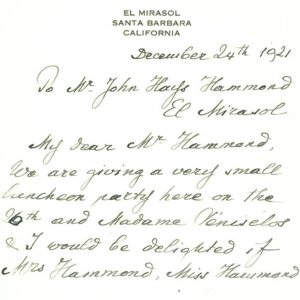 EL MIRASOL
SANTA BARBARA
CALIFORNIA
December 24th 1921
To Mr John Hays Hammond
El Mirasol
My dear Mr Hammond,
We are giving a very small
luncheon party here on the
26th and Madame Véniselos
& I would be delighted if
Mrs Hammond, Miss Hammond